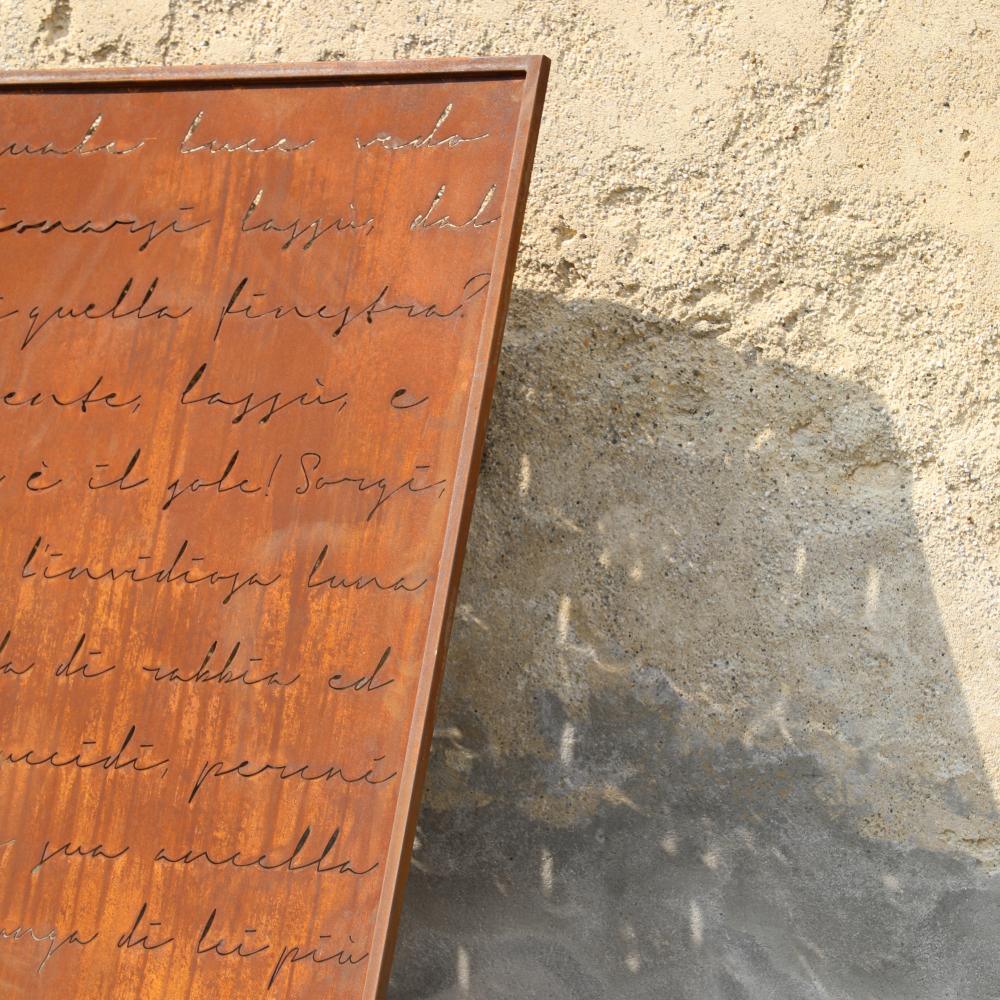 uale luce vedo
ionarsi lassù, dal
i quella finestra?
ente, lassù, e
è il sole! Sorgi,
l'invidiosa luna
a di rabbia ed
uccidi, perché
sua ancella
di lei più